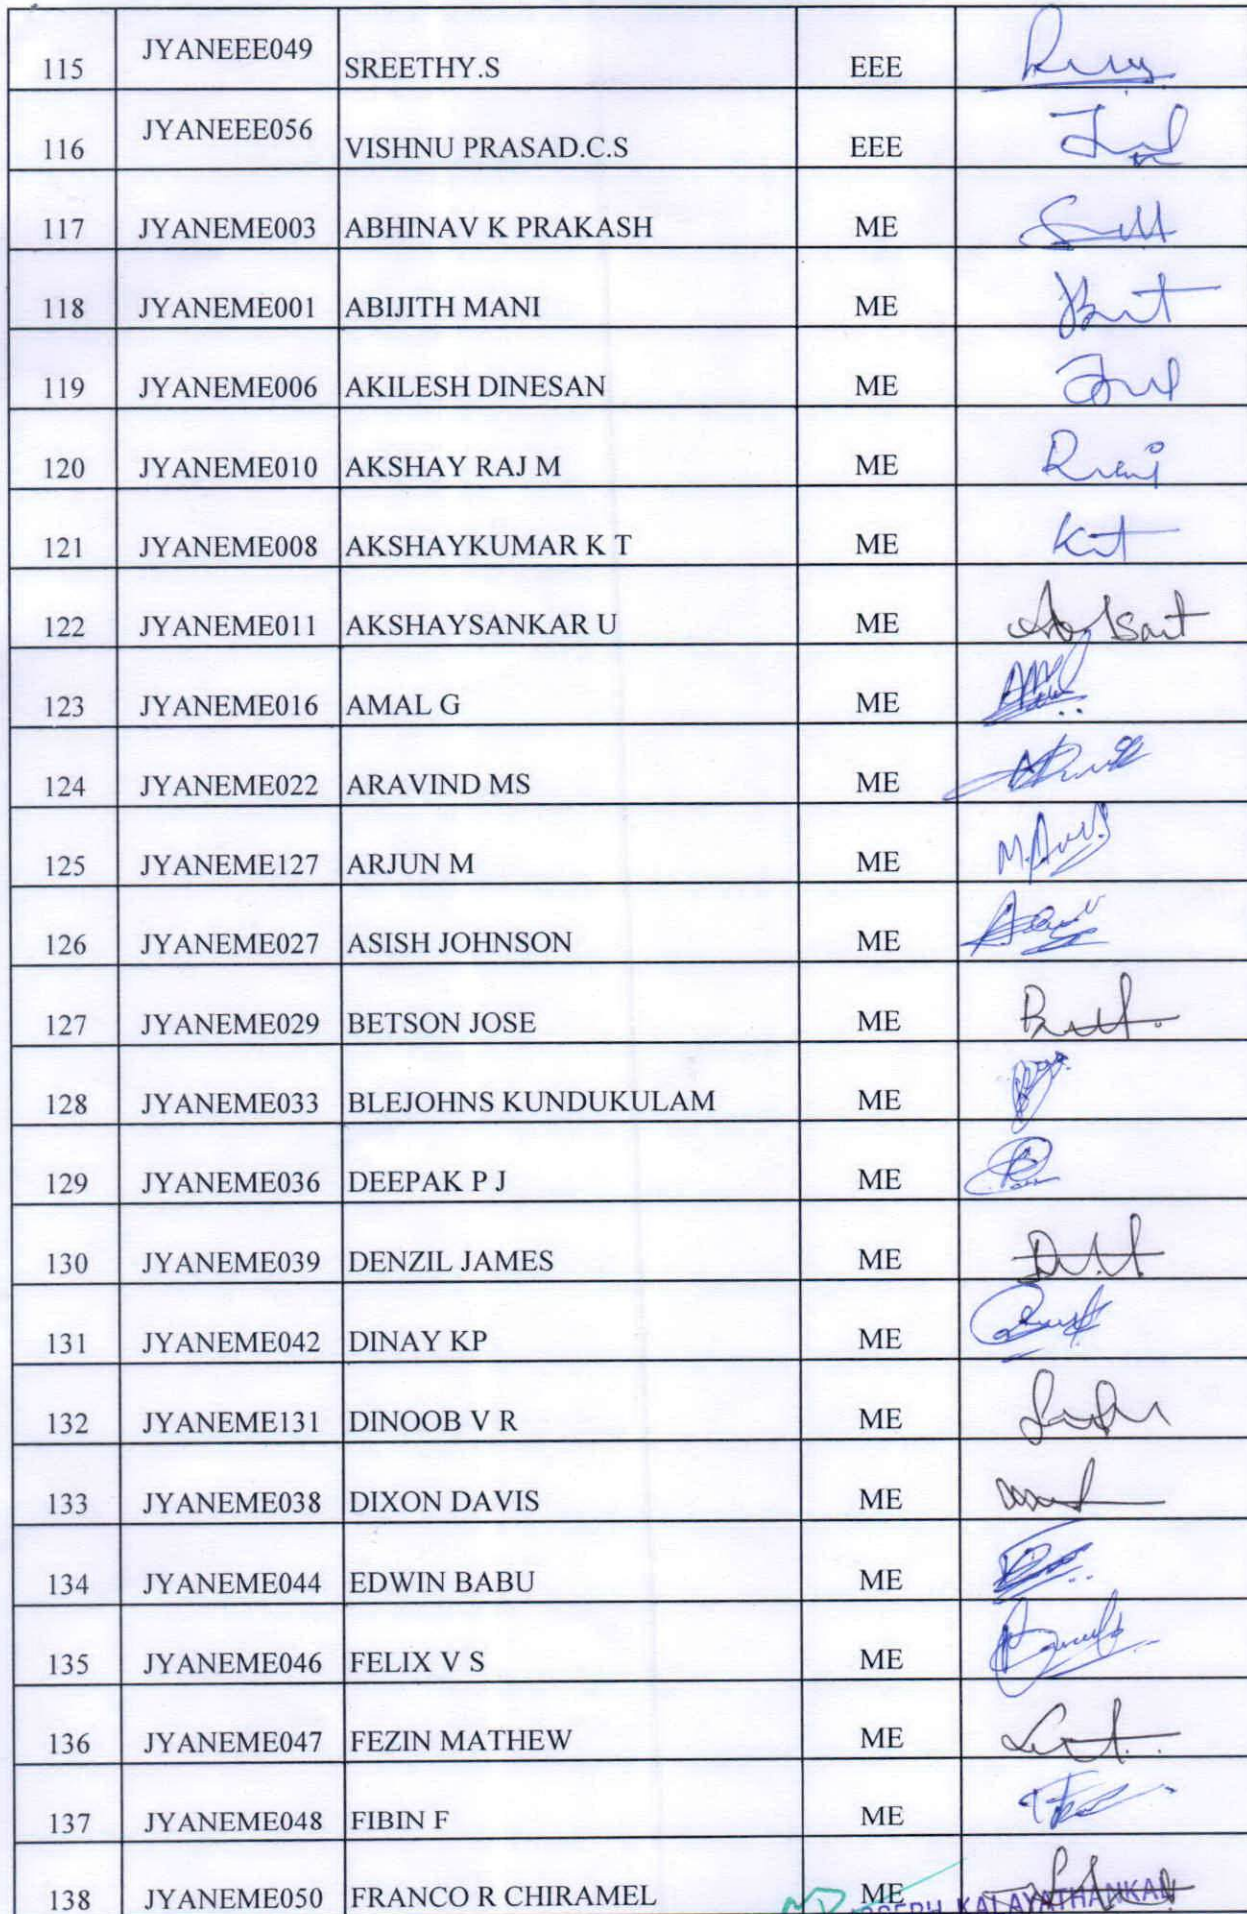 115 JYANEEE049 SREETHY.S EEE
116 JYANEEE056 VISHNU PRASAD.C.S EEE
117 JYANEME003 ABHINAV K PRAKASH ME
118 JYANEME001 ABIJITH MANI ME
119 JYANEME006 AKILESH DINESAN ME
120 JYANEME010 AKSHAY RAJ M ME
121 JYANEME008 AKSHAYKUMAR K T ME
122 JYANEME011 AKSHAYSANKAR U ME
123 JYANEME016 AMAL G ME
124 JYANEME022 ARAVIND MS ME
125 JYANEME127 ARJUN M ME
126 JYANEME027 ASISH JOHNSON ME
127 JYANEME029 BETSON JOSE ME
128 JYANEME033 BLEJOHNS KUNDUKULAM ME
129 JYANEME036 DEEPAK P J ME
130 JYANEME039 DENZIL JAMES ME
131 JYANEME042 DINAY KP ME
132 JYANEME131 DINOOB V R ME
133 JYANEME038 DIXON DAVIS ME
134 JYANEME044 EDWIN BABU ME
135 JYANEME046 FELIX V S ME
136 JYANEME047 FEZIN MATHEW ME
137 JYANEME048 FIBIN F ME
138 JYANEME050 FRANCO R CHIRAMEL ME